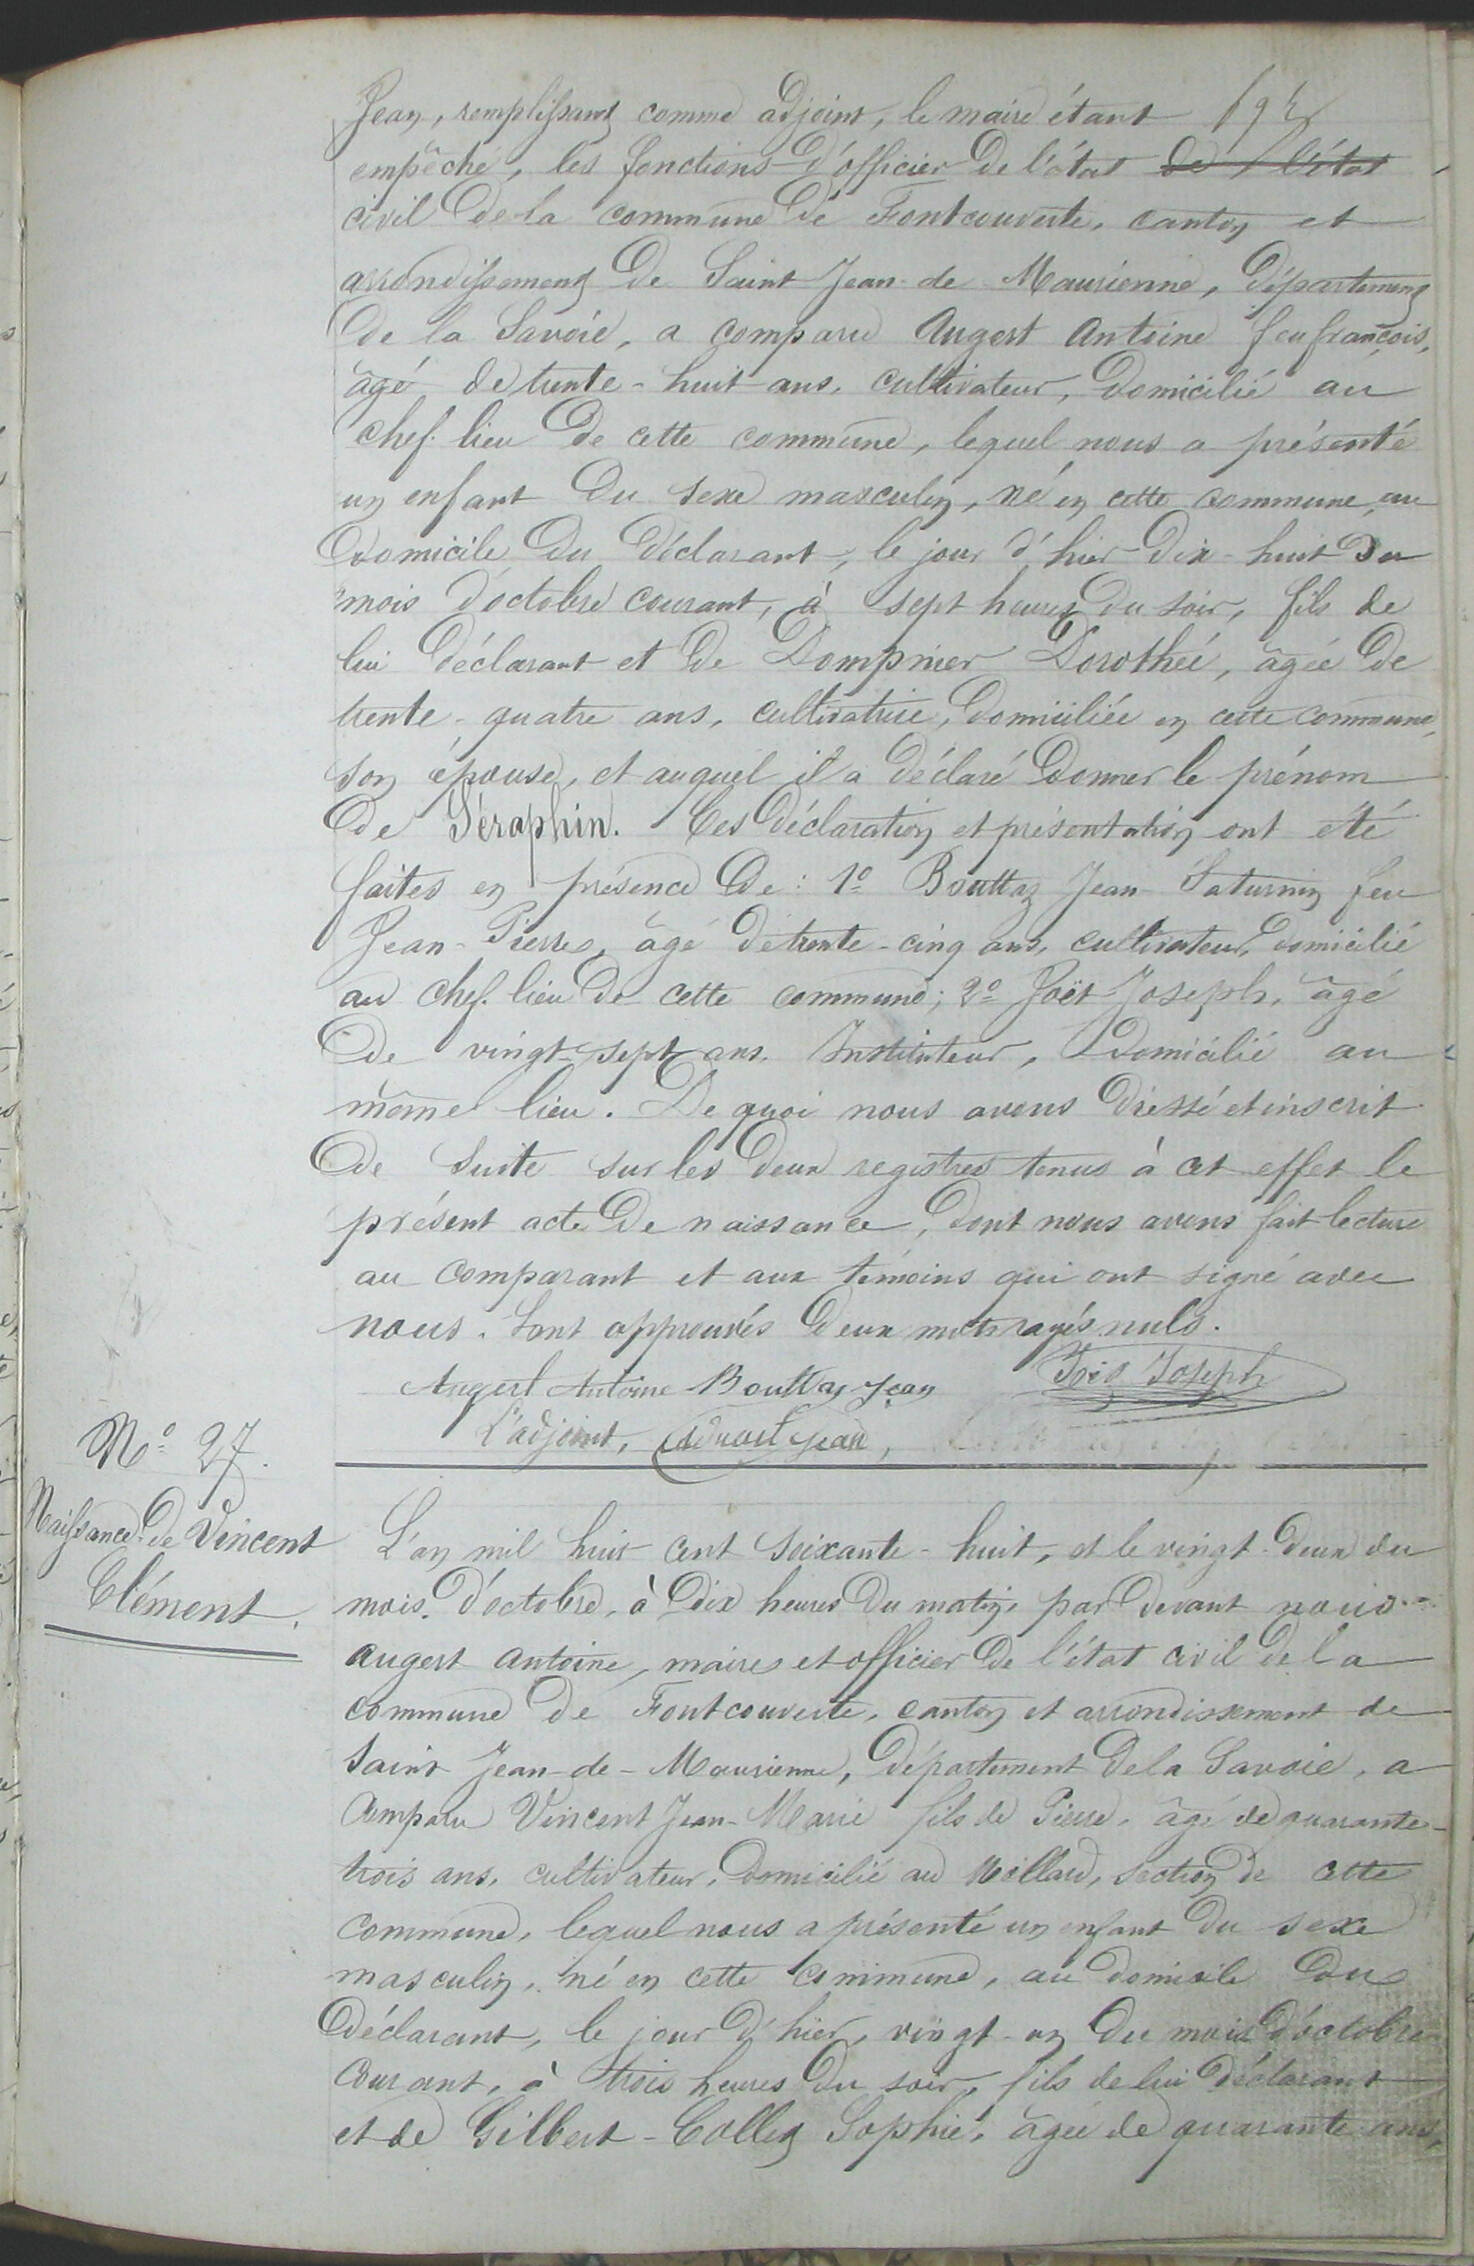 Jean, remplissant comme adjoint, le maire étant
empêché, les fonctions d'officier de l'état de l'état
civil de la commune de Fontcouverte, canton et
arrondissement de Saint Jean-de-Maurienne, département
de la Savoie, a comparu Augert Antoine feu françois,
âgé de trente-huit ans, cultivateur, domicilié au
chef-lieu de cette commune, lequel nous a présenté
un enfant du sexe masculin, né en cette commune, au
domicile du déclarant, le jour d'hier dix-huit du
mois d'octobre courant, à sept heures du soir, fils de
lui déclarant et de Dompnier Dorothée, âgée de
trente-quatre ans, cultivatrice, domiciliée en cette commune,
son épouse, et auquel il a déclaré donner le prénom
de Séraphin. Ces déclaration et présentation ont été
faites en présence de : 1º Bouttaz Jean Saturnin feu
Jean-Pierre, âgé de trente-cinq ans, cultivateur, domicilié
au chef-lieu de cette commune ; 2º Joseph, âgé
de vingt-sept ans, Instituteur, domicilié au
même lieu. De quoi nous avons dressé et inscrit
de suite sur les deux registres tenus à cet effet le
présent acte de naissance, dont nous avons fait lecture
au comparant et aux témoins qui ont signé avec
nous. Sont approuvés deux mots rayés nuls.
Augert Antoine Bouttaz Jean Joseph
L'adjoint, Jean,
Nº 27.
Naissance de Vincent
Clément.
L'an mil huit cent soixante-huit, et le vingt-deux du
mois d'octobre, à dix heures du matin, par devant nous
augert antoine, maire et officier de l'état civil de la
commune de Fontcouverte, canton et arrondissement de
Saint Jean-de-Maurienne, département de la Savoie, a
comparu Vincent Jean-Marie fils de Pierre, âgé de quarante-
trois ans, cultivateur, domicilié au Mollard, section de cette
commune, lequel nous a présenté un enfant du sexe
masculin, né en cette commune, au domicile du
déclarant, le jour d'hier, vingt-un du mois d'octobre
courant, à trois heures du soir, fils de lui déclarant
et de Gilbert-Collet Sophie, âgée de quarante ans,